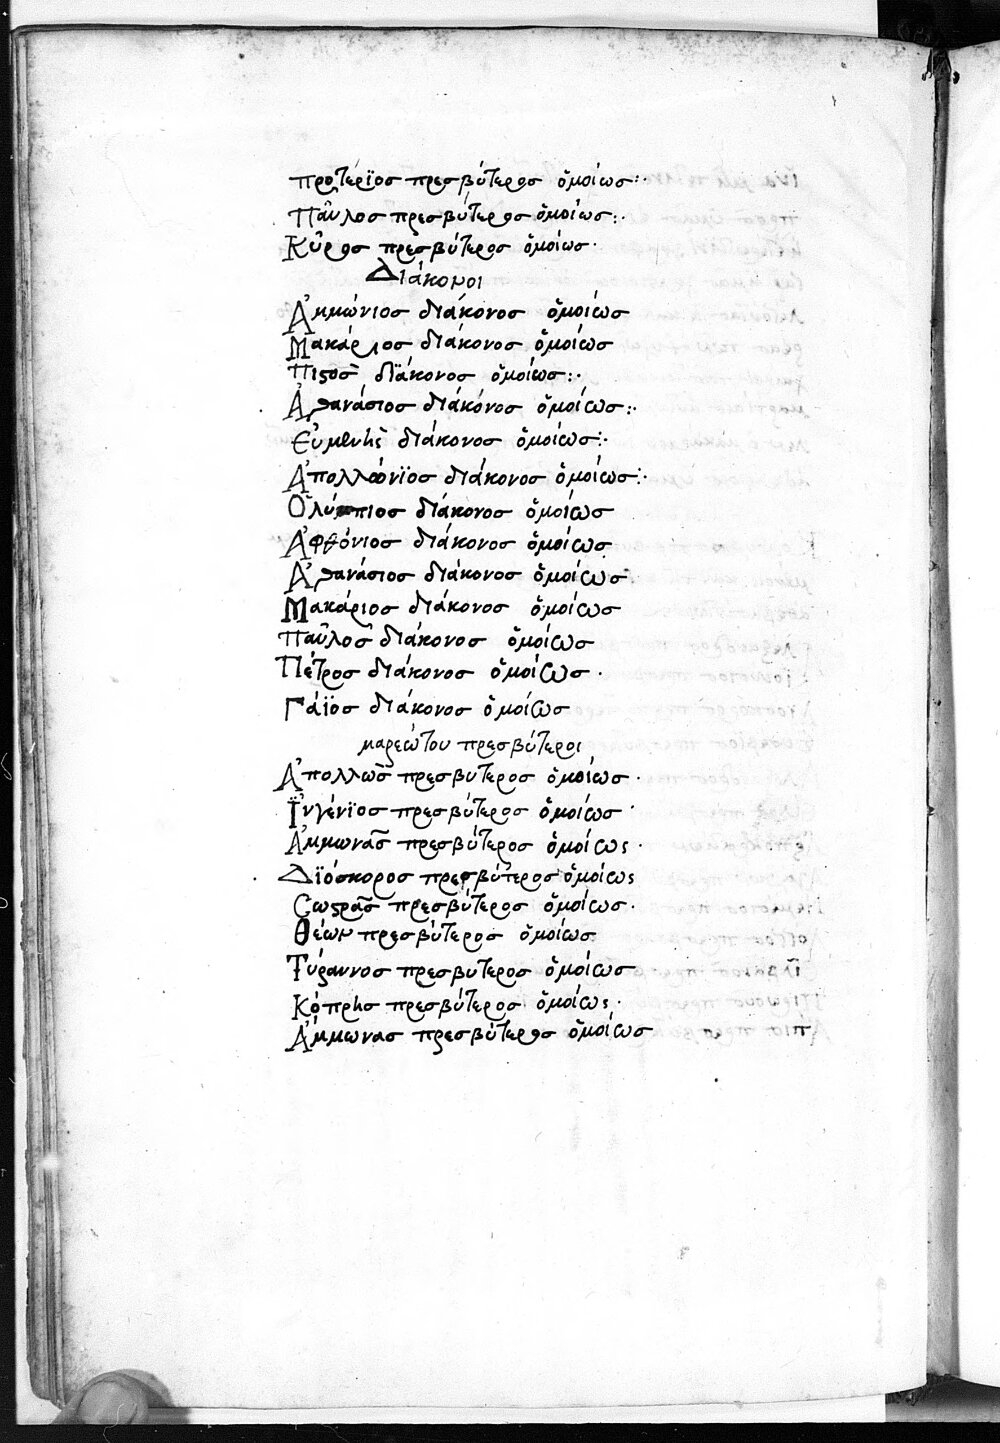 προτέρϊοσ πρεσβύτεροσ ὅμοίωσ:·
παῦλοσ πρεσβύτεροσ ὅμοίωσ:·
Κῦροσ πρεσβύτεροσ ὅμοίωσ·
Διάκονοι
Ἀμμώνιοσ διάκονοσ ὅμοίωσ
Μακάριοσ διάκονοσ ὅμοίωσ
πιϛοσ διάκονοσ ὅμοίωσ:·
Ἀθανάσιοσ διάκόνοσ ὅμοίωσ:·
Εὐμενὴσ διάκονοσ ὅμοίωσ:·
Ἀπολλώνϊοσ διάκονοσ ὅμοίωσ:·
Ὀλύμπιοσ διάκονοσ ὅμοίωσ
Ἀφθόνιοσ διάκονοσ ὅμοίωσ
Ἀθανάσιοσ διάκονοσ ὅμοίωσ
Μακάριοσ διάκονοσ ὅμοίωσ
παῦλοσ διάκονοσ ὅμοίωσ
Πέτροσ διάκονοσ ὅμοίωσ·
Γάϊοσ διάκονοσ ὅμοίωσ
μαρεώτου πρεσβύτεροι
Ἀπολλῶσ πρεσβυτεροσ ὅμοίωσ·
Ϊνγένϊοσ πρεσβύτεροσ ὅμοίωσ·
Ἀμμωνᾶσ πρεσβύτεροσ ὅμοίως·
Διόσκοροσ πρεσβύτεροσ ὅμοίως
Σωϛρᾶσ πρεσβύτεροσ ὅμοίωσ·
Θέων πρεσβύτεροσ ὅμοίωσ
Τύραννοσ πρεσβυτεροσ ὅμοίωσ
Κόπρησ πρεσβύτεροσ ὅμοίως·
Ἀμμωνασ πρεσβύτεροσ ὅμοίωσ